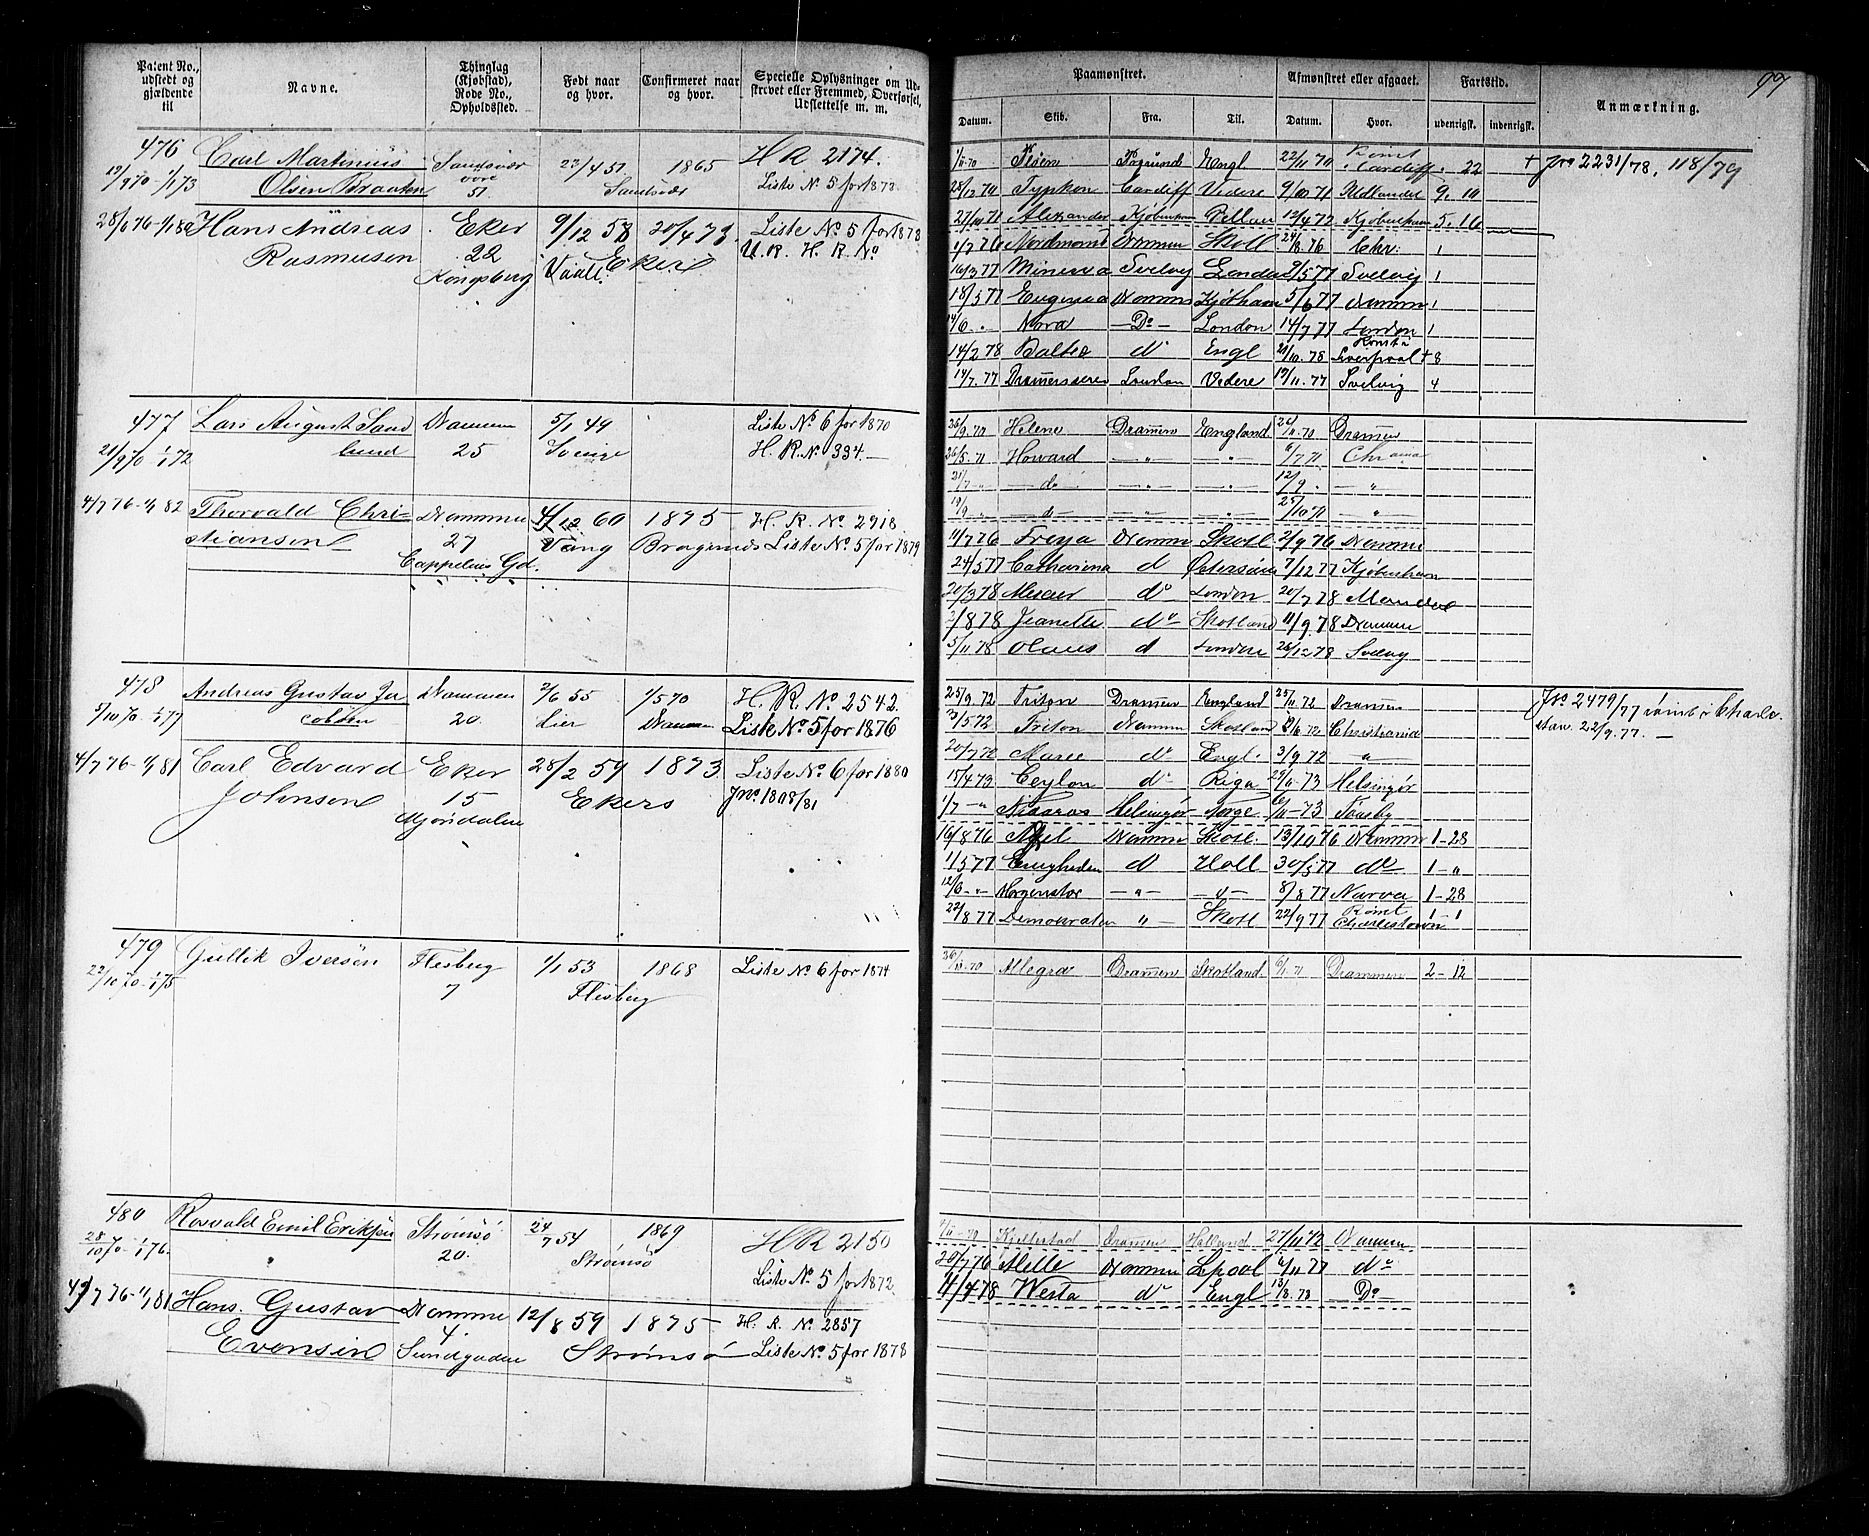 Patent No., udstedt og gjældende til
Navne.
Thinglag (Kjøbstad), Rode No., Opholdssted.
Født naar og hvor.
Confirmeret naar og hvor.
Specielle Oplysninger om Udskrevet eller Fremmed, Overførsel, Udslettelse m. m.
476
19/9 70 - 1/1 73
Carl Martinius
Olsen Braaten
Sandsvær
51.
23/4 51
1865
Sandsvær
H R 2174.
Liste No 5 for 1873
28/6 76 - 1/1 80
Hans Andreas
Rasmusen
Eker
22
Kongsberg
9/12 58
20/4 73.
Eker
Liste No 5 for 1878
U. R. H. R. No
477
21/9 70 1/1 72
Lars August Sand
lund
Drammen
25
5/1 49
Svinge
Liste No 6 for 1870
H. R. No 334. —
4/7 76 - 1/1 82
Thorvald Chri-
stiansen
Drammen
27
Cappelens Gd.
4/12 60
Vang
1875
Bragernæs
H. R. No 2918
Liste No 5 for 1879
478
5/10 70 - 1/1 77
Andreas Gustav Ja
cobsen
Drammen
20.
2/6 55
Lier
1/5 70
Drammen
H. R. No 2542.
Liste No 5 for 1876
4/7 76 - 1/1 81
Carl Edvard
Johnsen
Eker
15
Mjøndalen
28/2 59
1873
Ekers
Liste No 6 for 1880
Jno 1808/81
479
22/10 70 - 1/1 75
Gullik Iversen
Flesberg
7
1/1 53
1868
Flesberg
Liste No 6 for 1874
480
28/10 70 - 1/1 76.
Rosvald Emil Eriksen
Strømsø
20.
24/7 54
1869
Strømsø
H R 2150
Liste No 5 for 1872
4/7 76 - 1/1 81
Hans Gustav
Evensen
Dramme
4.
Sundgaden
12/8 59
1875
Strømsø
H. R. No 2857
Liste No 5 for 1878
97
Paamønstret.
Afmønstret eller afgaaet.
Fartstid.
Anmærkning.
Datum. Skib. Fra. Til. Datum. Hvor. udenrigsk. indenrigsk.
1/11 70 Porsgrund Engl 22/11 70 Rømt Cardiff. 22 + Jno 2231/78, 118/79
28/12 70 Cardiff Videre 9/10 71 Udlandet 9. 10
27/10 71 Alexander Kjøbenhavn 12/4 72 Kjøbenhavn 5. 16
1/7 76 Drammen Skotl 24/8 76 Chr: 1
16/3 77 Minerva Svelvig London 9/5 77 Svelvig 1
18/5 77 Eugenia Dramme Kjøbhavn 5/6 77 Dramm 1
14/6 . Nora — Do — London 14/7 77 London 1
14/2 78 Do Engl 21/10 78 Rømt i Liverpool + 8
14/7. 77 London Videre 19/11. 77 Svelvig 4
26/9 70 Helene Drammen England 26/11 70 Drammen
26/5. 71 Howard — „ — — „ — 6/7 71 Chrania
21/7 „ — do — „ — — „ — 12/9 . — „
19/9 „ — do — „ — — „ — 25/10 71 — „
11/7 76 Freya Dramme Skotl 2/9 76 Dramme
24/5 77 Catharina do Østersøen 7/12 77 Kjøbenhavn
20/3 78 do London 20/7 78 Mandal
2/8 78 Jeanette do Skotland 11/9. 78 Drammen
5/11 78 Olaus do London 26/12 78 Svelvig
25/9 72 Triton Drammen England 25/11 72 Drammen Jno 2479/77 rømt i Charle.
3/5 72 Triton Dramme Skotland Christiania stown 22/9. 77. —
20/7 72 Marie do Engl. 3/9 72 „
15/4 73 Ceylon do Riga 29/6 73 Helsingør
1/7 - „ Nidaros Helsingør Norge 6/11 - 73 Tønsbg
16/8 76 Dramme Skotl. 13/10 76 Dramme 1 - 28
1/5 77 Enigheden do Holl 30/5 77 do 1 - „
12/6 - „ Morgenstar — „ — — „ — 8/8 77 Narva 1 - 28
22/8 77 Demokraten „ Skotl 22/9 77 Rømt Charlestown 1 1
26/11 70 Allegra Drammen Skotland. 6/1 71 Drammen 2 - 12
1/11 70 Kjellestad Drammen Holland 27/11 72 Drammen
20/7 76 Dramme Lpool 6/11 77 do
4/4 78 Westa do Engl 13/8. 78 — Do —